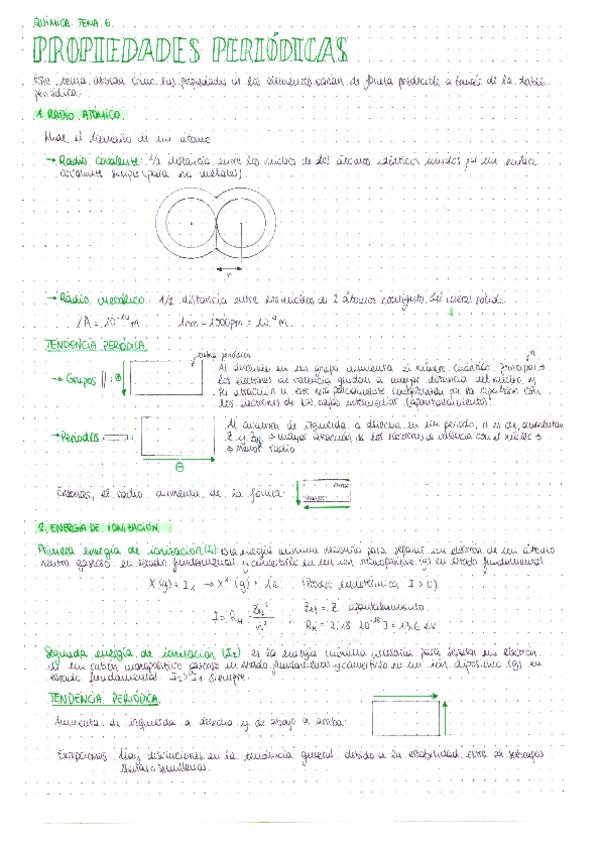 QUÍMICA TEMA 6.
PROPIEDADES PERIÓDICAS
Este tema aborda cómo las propiedades de los elementos varían de forma predecible a través de la tabla
periódica.
1. RADIO ATÓMICO.
Mide el tamaño de un átomo
→ Radio covalente: 1/2 distancia entre los núcleos de dos átomos idénticos unidos por un enlace
covalente simple (para no metales).
r
→ Radio metálico: 1/2 distancia entre los núcleos de 2 átomos contiguos del metal sólido
1A = 10⁻¹⁰ m 1nm = 1000pm = 10⁻⁹ m
TENDENCIA PERIÓDICA.
tabla periódica
→ Grupos ⊕
Al descender en un grupo aumenta el número cuántico principal n
los electrones de valencia quedan a mayor distancia del núcleo y
la atracción es parcialmente por la repulsión con
los electrones de las capas intermedias (apantallamiento).
→ Periodos
⊖
Al avanzar de izquierda a derecha en un periodo, n es cte, aumentan
Z y Zef → mayor atracción de los electrones de valencia con el núcleo →
→ menor radio
Entonces, el radio aumenta de la forma:
2. ENERGÍA DE IONIZACIÓN
Primera energía de ionización (I₁): es la energía mínima necesaria para separar un electrón de un átomo
neutro gaseoso en estado fundamental y convertirlo en un ion monopositivo (g) en estado fundamental
X(g) + I₁ → X⁺(g) + 1e⁻ (Proceso endotérmico I > 0)
I = RH · Zef² / n²
Zef = Z apantallamiento.
RH = 2,18 · 10⁻¹⁸ J = 13,6 eV
Segunda energía de ionización (I₂) es la energía mínima necesaria para separar un electrón
de un catión monopositivo gaseoso en estado fundamental y convertirlo en un ion dipositivo (g) en
estado fundamental I₂ > I₁ siempre.
TENDENCIA PERIÓDICA.
Aumenta de izquierda a derecha y de abajo a arriba.
Excepciones: Hay desviaciones en la tendencia general debido a la estabilidad extra de subcapas
llenas o semillenas.